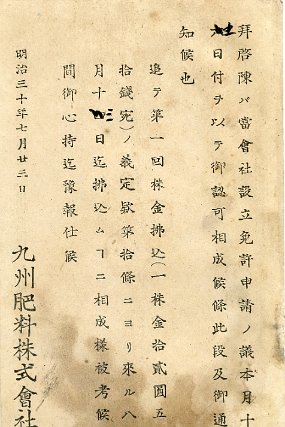 拜啓陳バ當會社設立免許申請ノ議本月十
七日付ヲ以テ御認可相成候條此段及御通
知候也
追テ第一回株金拂込(一株金拾貳圓五
拾錢宛)ノ義定欵第拾條ニヨリ來ル八
月十三日迄拂込ムヿニ相成樣被考候
間御心持迄豫報仕候
明治三十年七月廿三日
九州肥料株式會社